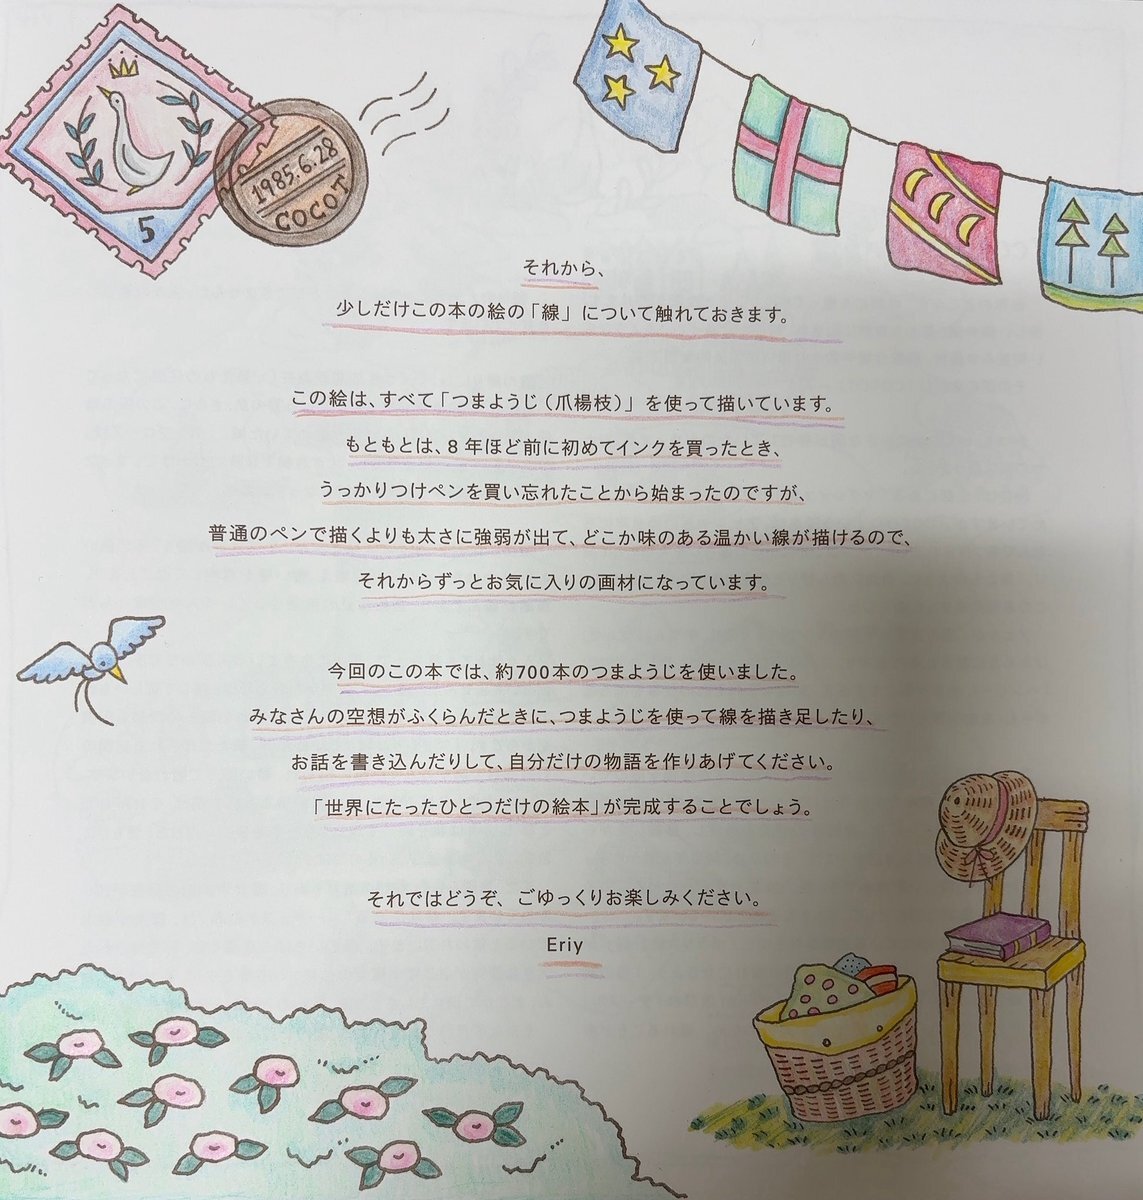 5
1985.6.28
COCOT
それから、
少しだけこの本の絵の「線」について触れておきます。
この絵は、すべて「つまようじ（爪楊枝）」を使って描いています。
もともとは、8年ほど前に初めてインクを買ったとき、
うっかりつけペンを買い忘れたことから始まったのですが、
普通のペンで描くよりも太さに強弱が出て、どこか味のある温かい線が描けるので、
それからずっとお気に入りの画材になっています。
今回のこの本では、約700本のつまようじを使いました。
みなさんの空想がふくらんだときに、つまようじを使って線を描き足したり、
お話を書き込んだりして、自分だけの物語を作りあげてください。
「世界にたったひとつだけの絵本」が完成することでしょう。
それではどうぞ、ごゆっくりお楽しみください。
Eriy